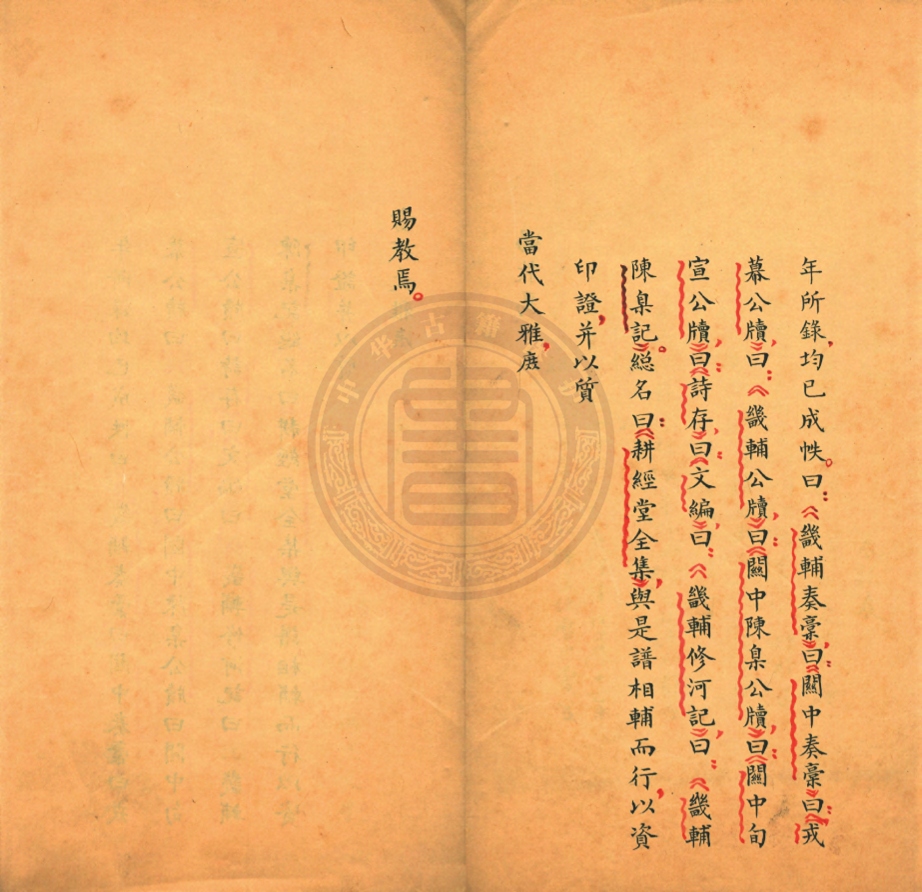 年所錄，均已成帙。曰：《畿輔奏稾》，曰：《關中奏稾》，曰：《戎
幕公牘》，曰：《畿輔公牘》，曰：《關中陳臬公牘》，曰：《關中旬
宣公牘》，曰：《詩存》，曰：《文編》，曰：《畿輔修河記》，曰：《畿輔
陳臬記》。緫名曰：《耕經堂全集》，與是譜相輔而行，以資
印證，并以質
當代大雅，庶
賜教焉。
中华古籍